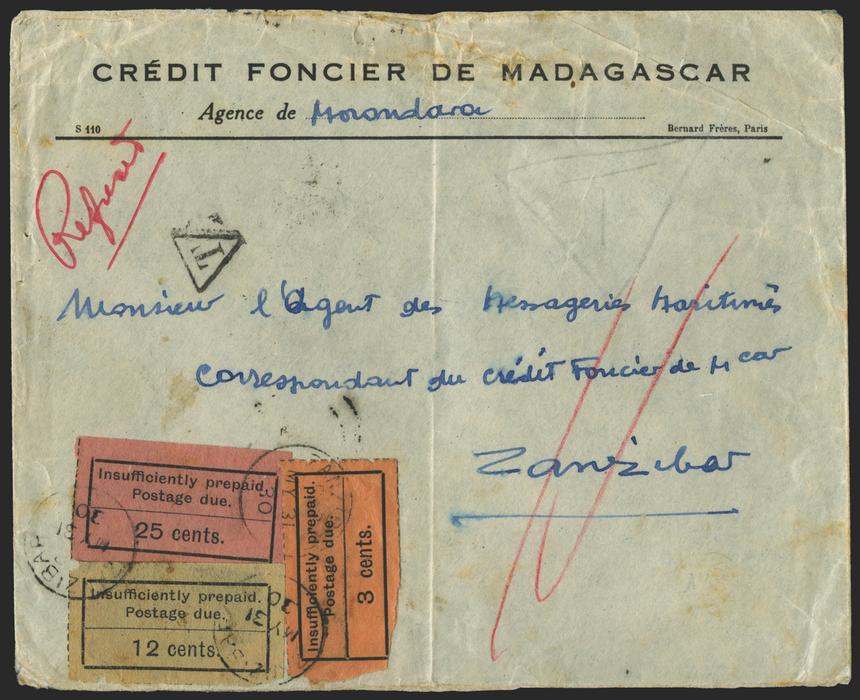 CRÉDIT FONCIER DE MADAGASCAR
Agence de Morondara
S 110
Bernard Frères, Paris
Refusé
T
Monsieur l'Agent des Messageries Maritimes
Correspondant du crédit Foncier de Mcar
Zanzibar
Insufficiently prepaid.
Postage due.
25 cents.
Insufficiently prepaid.
Postage due.
3 cents.
Insufficiently prepaid.
Postage due.
12 cents.
MY 31
30
MY 31
30
MY 31
30